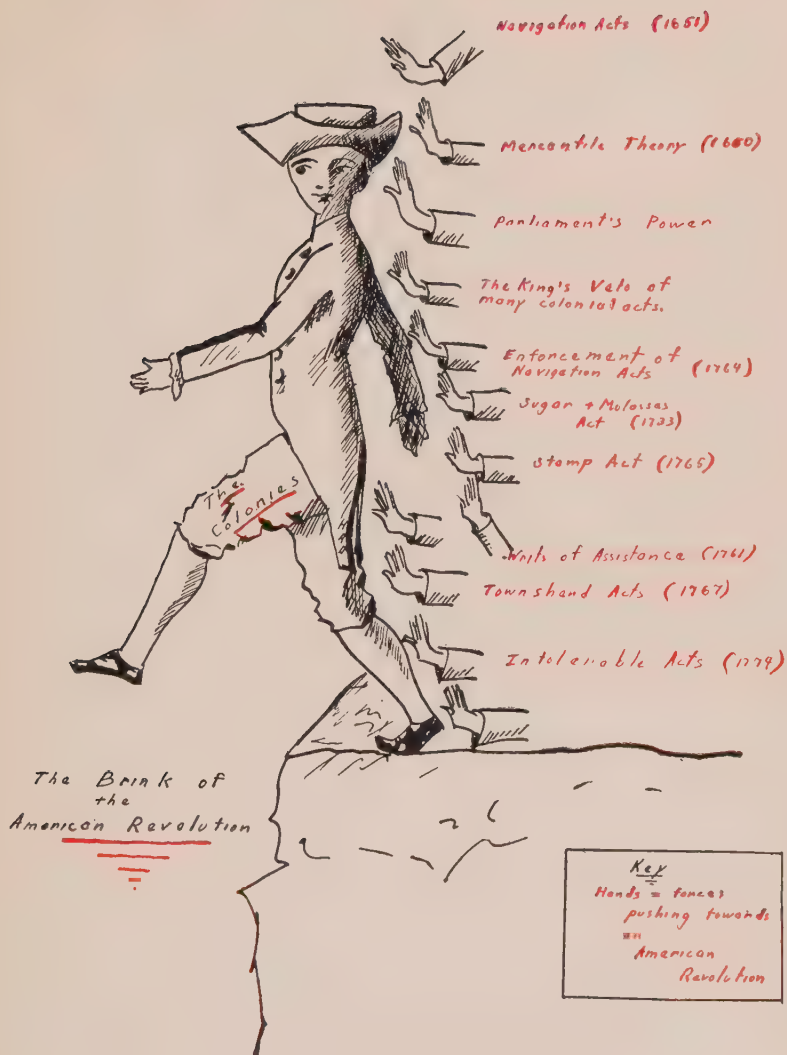 Navigation Acts (1651)
Mercantile Theory (1660)
Parliament's Power
The King's Veto of
many colonial acts.
Enforcement of
Navigation Acts (1764)
Sugar + Molasses
Act (1733)
Stamp Act (1765)
Writs of Assistance (1761)
Townshand Acts (1767)
Intolerable Acts (1774)
The
Colonies
The Brink of
the
American Revolution
Key
Hands = forces
pushing towards
American
Revolution